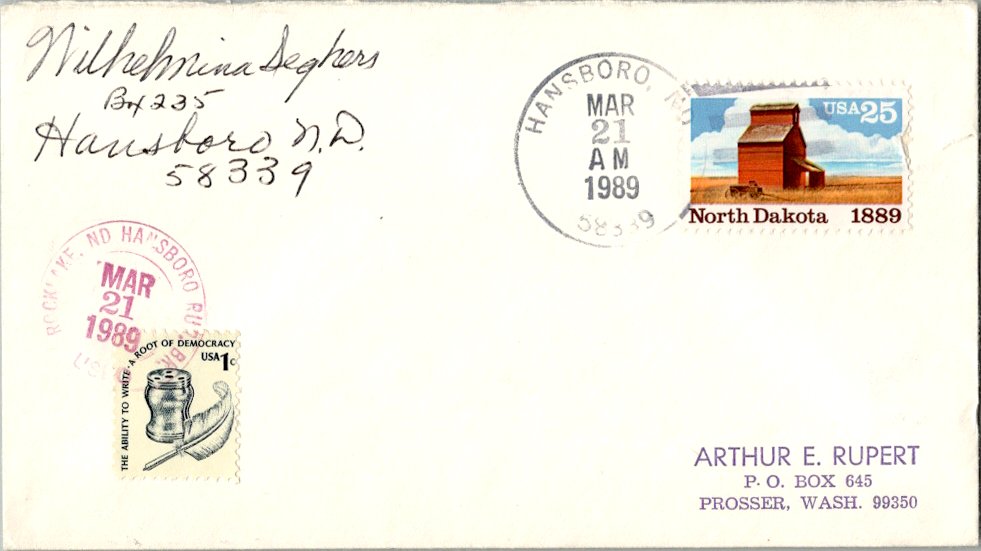 Wilhelmina Seghers
Box 235
Hansboro N.D.
58339
HANSBORO, ND
MAR
21
AM
1989
58339
USA 25
North Dakota 1889
ROCKLAKE, ND HANSBORO RUR. BR.
MAR
21
1989
THE ABILITY TO WRITE·A ROOT OF DEMOCRACY
USA 1c
ARTHUR E. RUPERT
P. O. BOX 645
PROSSER, WASH. 99350